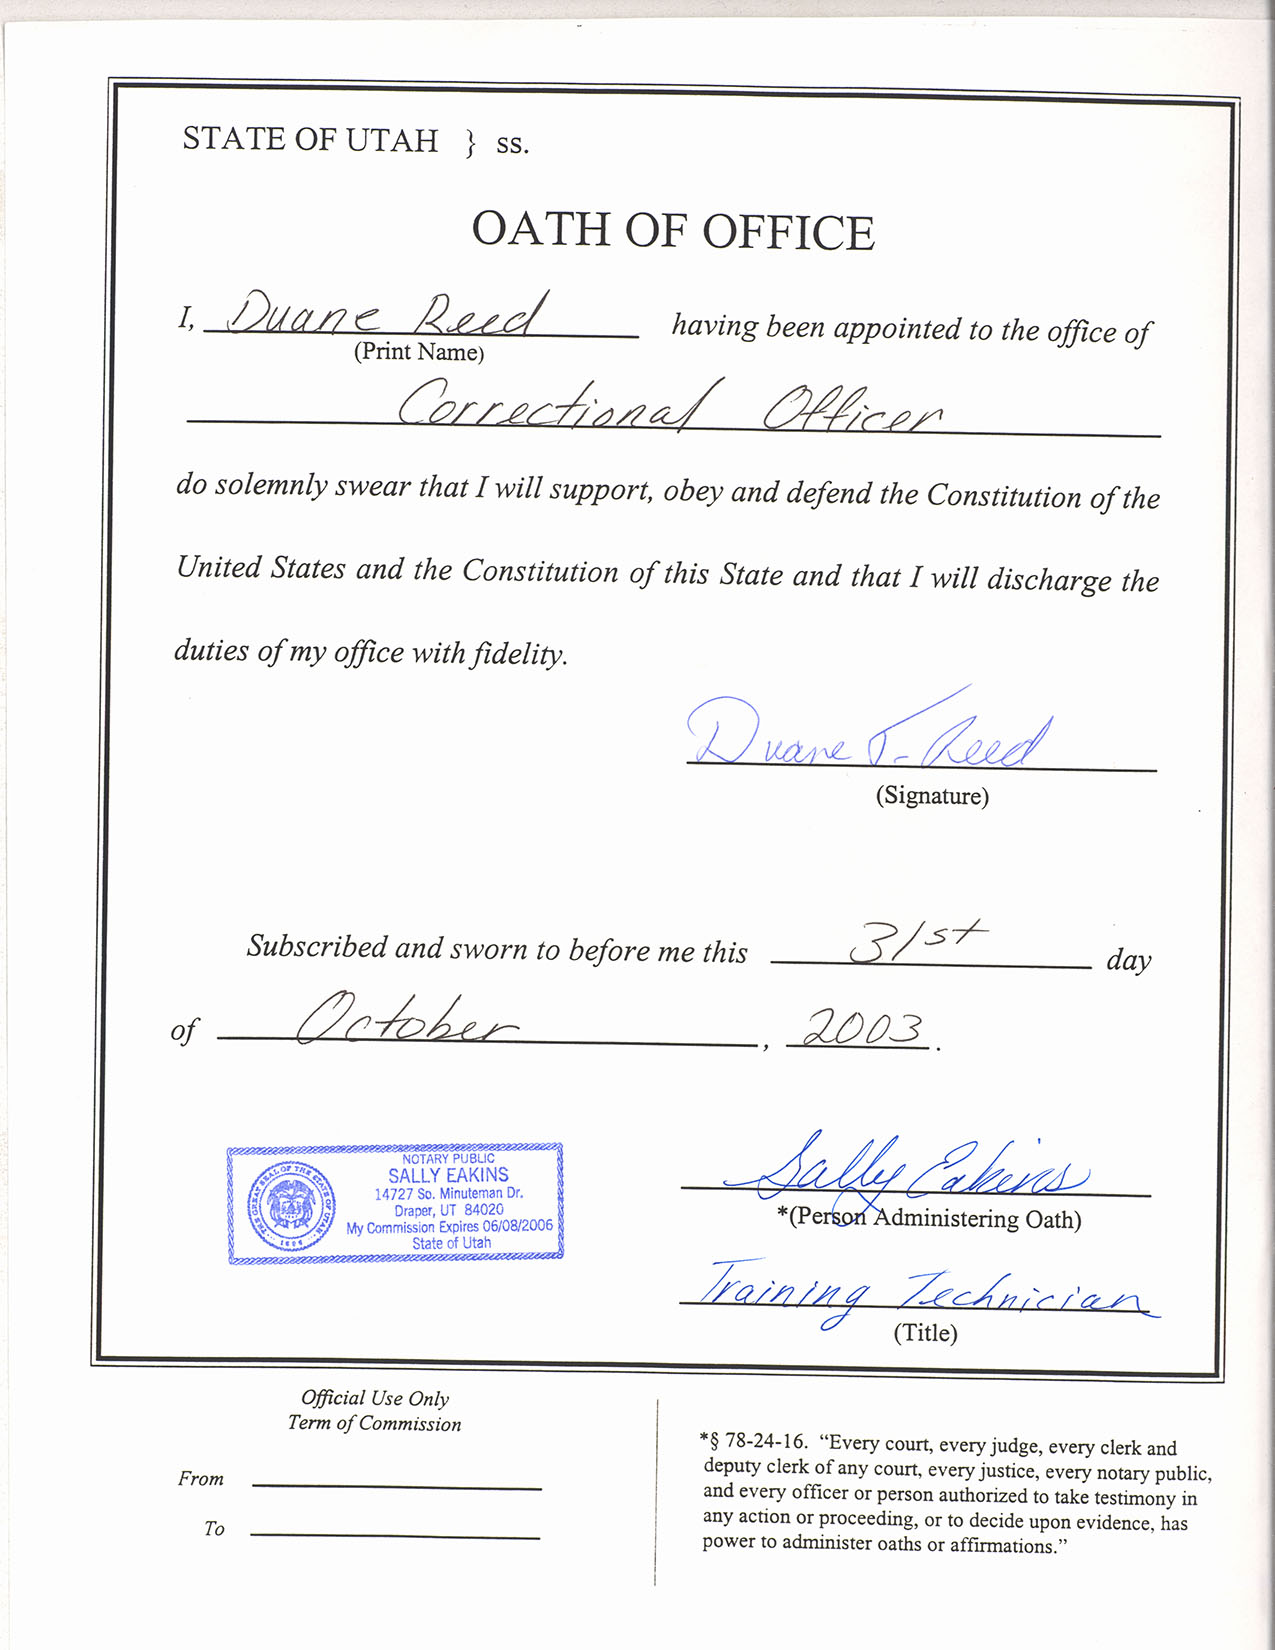 STATE OF UTAH } ss.
OATH OF OFFICE
I, Duane Reed having been appointed to the office of
(Print Name)
Correctional Officer
do solemnly swear that I will support, obey and defend the Constitution of the
United States and the Constitution of this State and that I will discharge the
duties of my office with fidelity.
Duane T. Reed
(Signature)
Subscribed and sworn to before me this 31st day
of October, 2003.
NOTARY PUBLIC
SALLY EAKINS
14727 So. Minuteman Dr.
Draper, UT 84020
My Commission Expires 06/08/2006
State of Utah
THE GREAT SEAL OF THE STATE OF UTAH
1896
Sally Eakins
*(Person Administering Oath)
Training Technician
(Title)
Official Use Only
Term of Commission
From
To
*§ 78-24-16. “Every court, every judge, every clerk and
deputy clerk of any court, every justice, every notary public,
and every officer or person authorized to take testimony in
any action or proceeding, or to decide upon evidence, has
power to administer oaths or affirmations.”